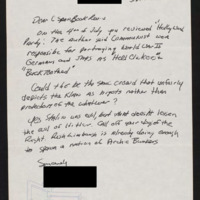 Dear C-Span Book Review
On the 4th of July you reviewed "Hollywood
Party". The author said Communists were
responsible for portraying World War II
Germans and Japs as
"Buck
Could it be the same crowd that unfairly
depicts the Klan as bigots rather than
protectors of the whatever?
Yes Stalin was evil, but that doesn't lessen
the evil of Hitler. Call off your dogs of the
Right. Rush Limbaugh is already doing enough
to spawn a nation of Archie Bunkers
Sincerely